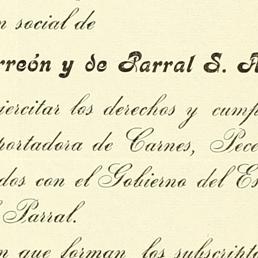 n social de
rreón y de Parral S. A
jercitar los derechos y cump
portadora de Carnes, Pece
dos con el Gobierno del Es
l Parral.
n que forman los subscripto